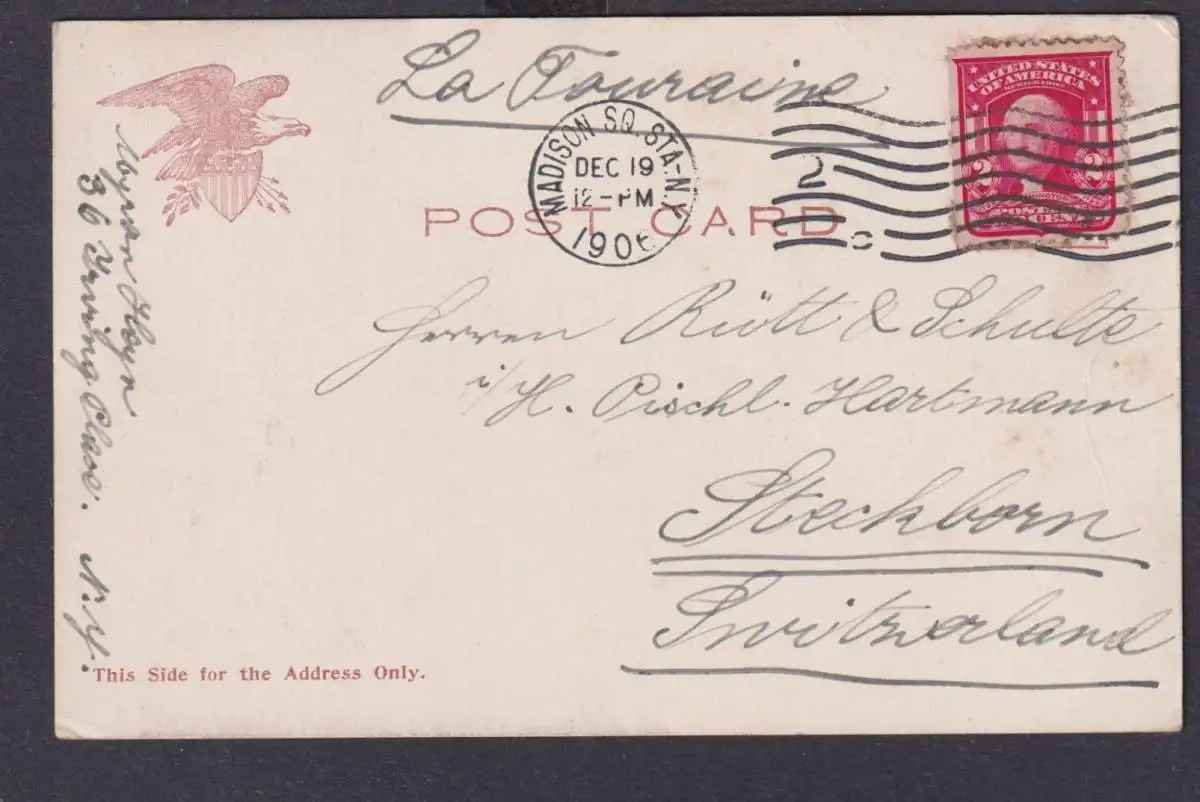 La Touraine
MADISON SQ. STA-N.Y.
DEC 19
12-PM
1906
2
UNITED STATES
OF AMERICA
2 2
POST CARD
Herren Rütt & Schulte
i/H. Pischl. Hartmann
Steckborn
Switzerland
Myron Heyn
36 Irving Place. N.Y.
This Side for the Address Only.